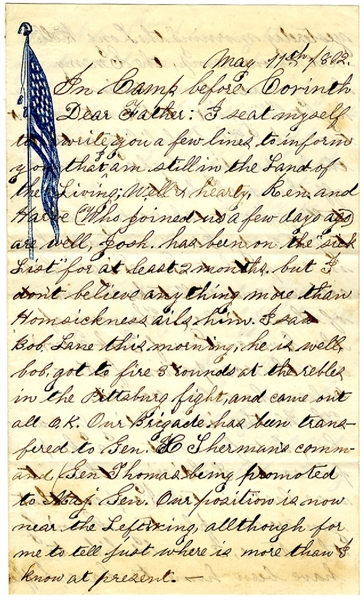 May 11th/862.
In Camp before Corinth
Dear Father: I seat myself
to write you a few lines to inform
you that am still in the Land of
the Living; Well & hearly, Ken and
Harve (Who joined us a few days ago)
are well, Josh. has been on the "sick
List" for at least 2 months, but I
don't believe anything more than
Homsickness ails him. I saw
Bob. Lane this morning, he is well,
bob, got to fire 3 rounds at the rebles
in the Pittsburg fight, and came out
all O.K. Our Brigade has bun trans-
fered to Gen. Shermans comm-
and, Gen Thomas being promoted
to Maj. Gen. Our position is now
near the Left wing, allthough for
me to tell just where is more than I
know at present. —